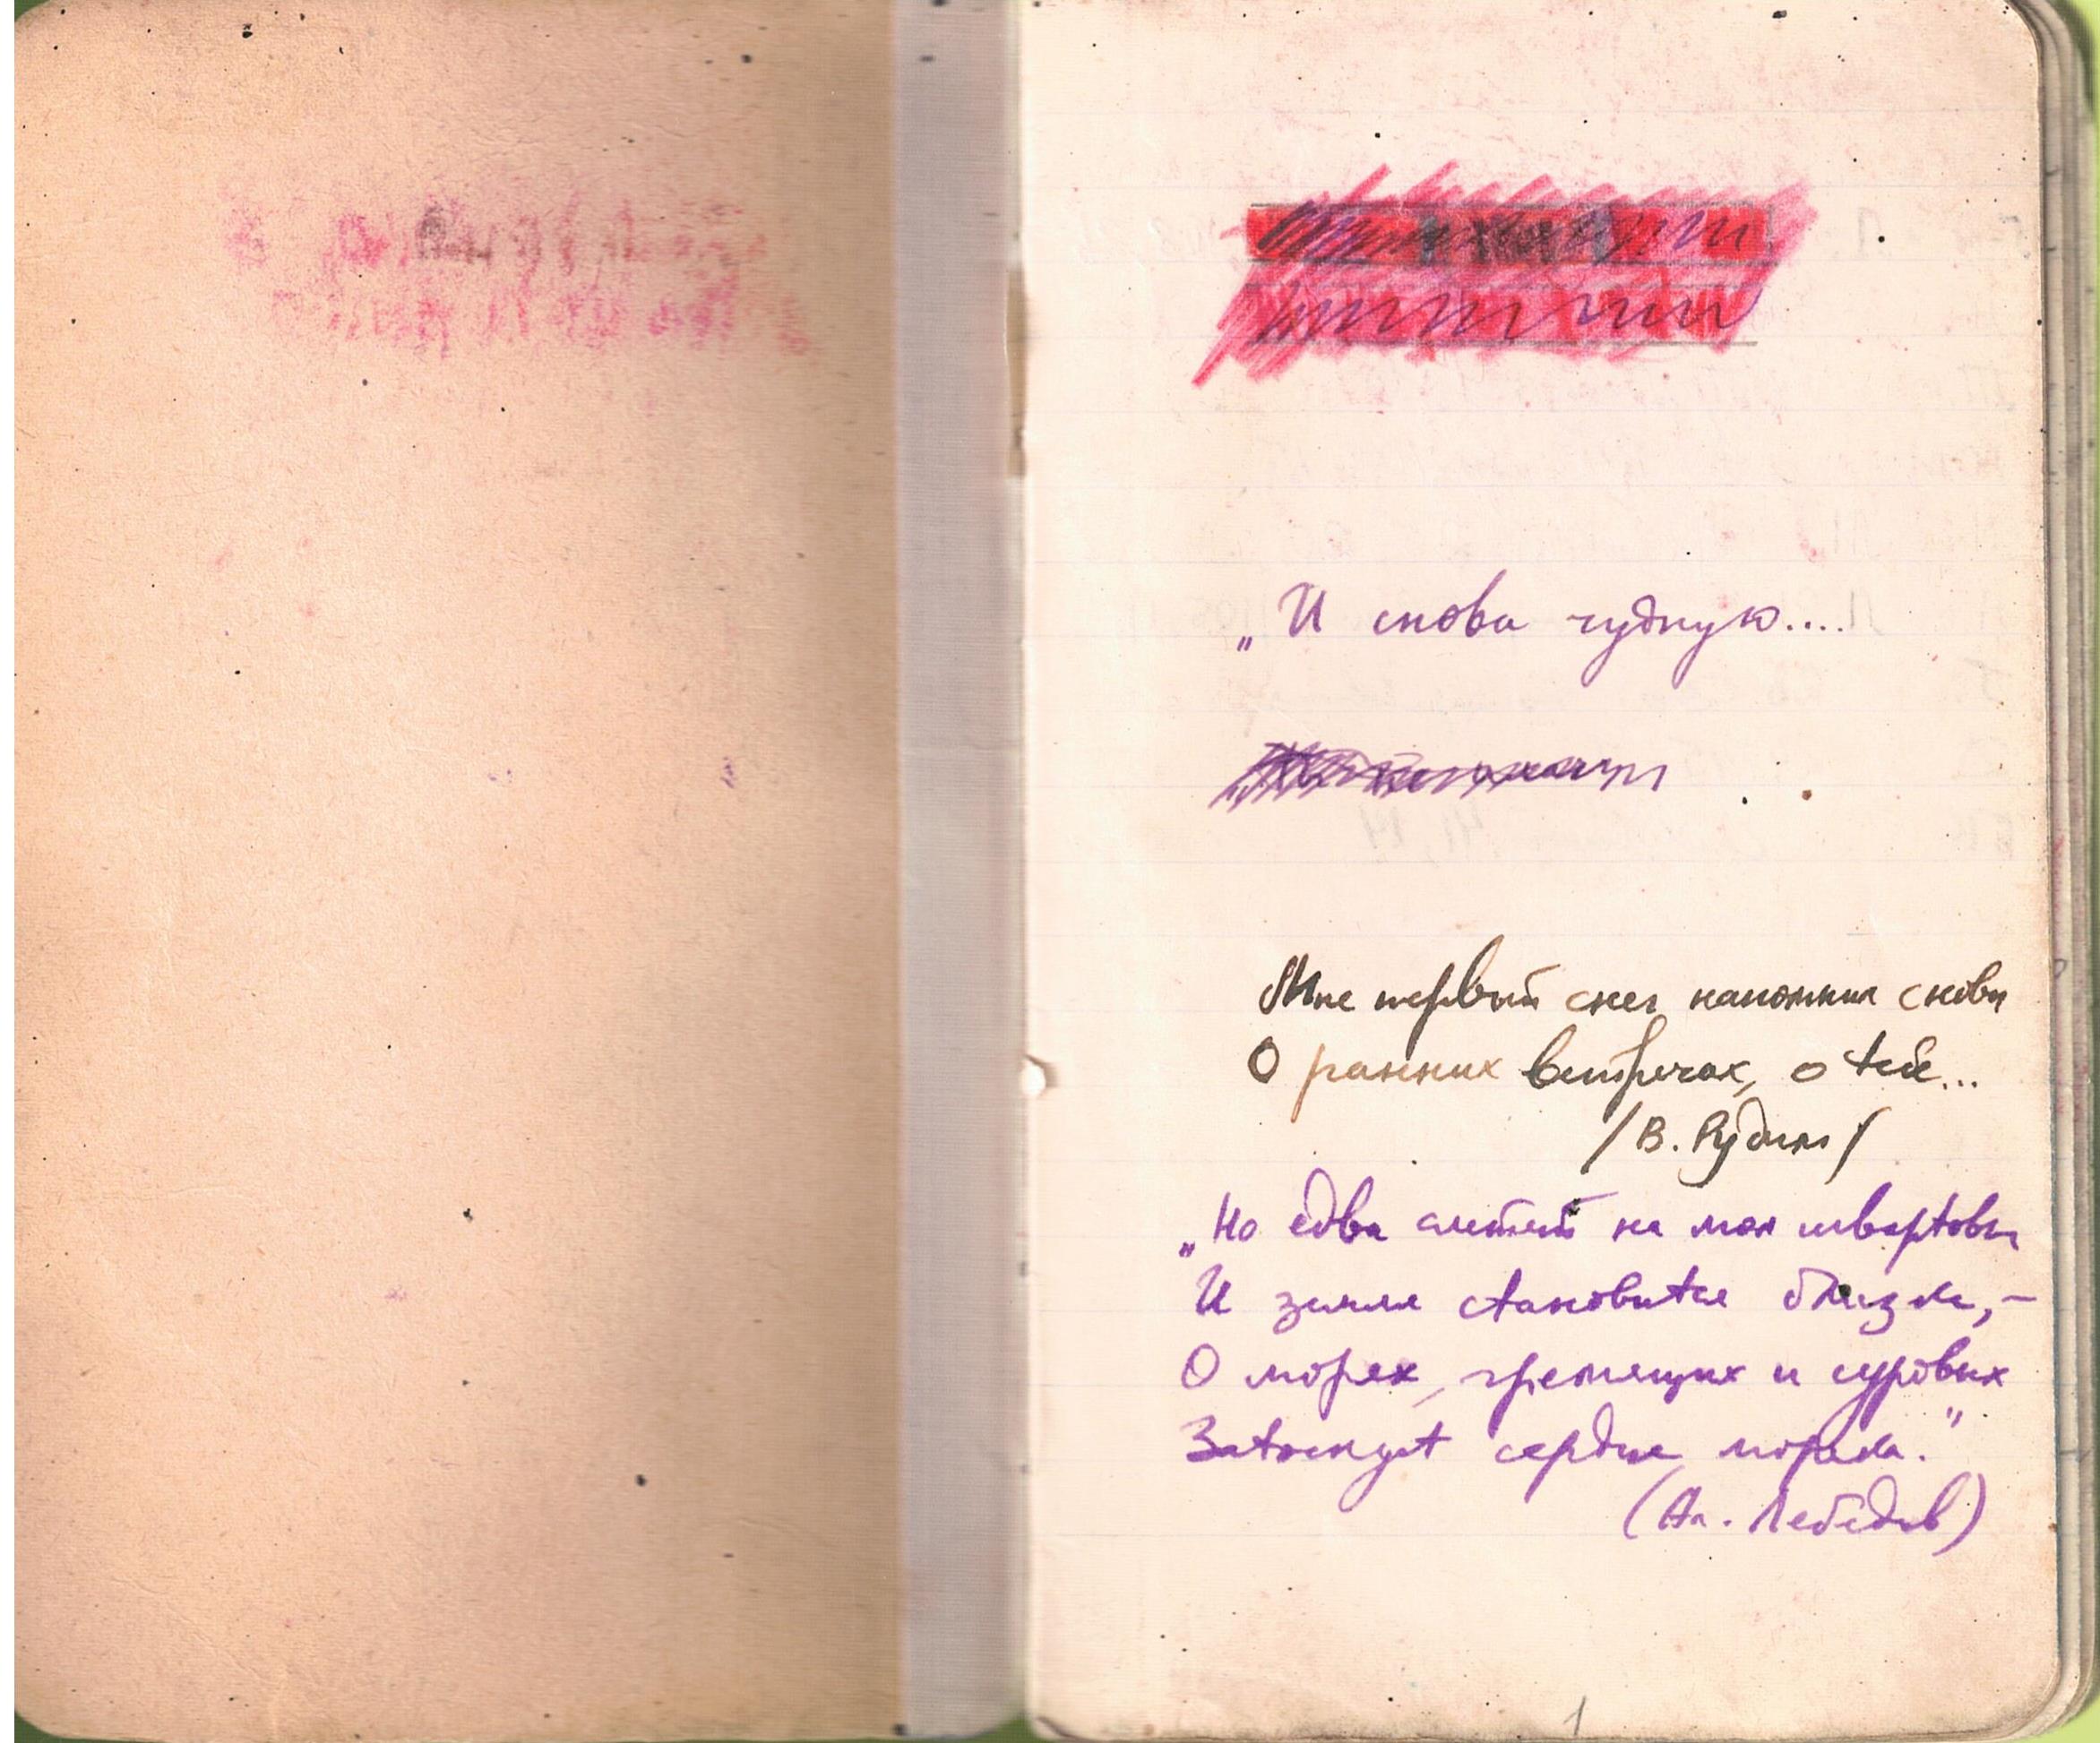 „И снова чудную....
Мне первый снег напомнил снова
О ранних встречах, о тебе...
/В. Рудим/
„Но едва слетят на мол швартовы
И земля становится близка,–
О морях, гремящих и суровых
Затоскует сердце моряка."
(Ал. Лебедев)
1